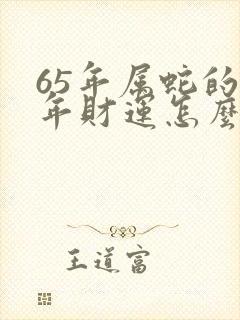 65年属蛇的
年财运怎麼
王道富